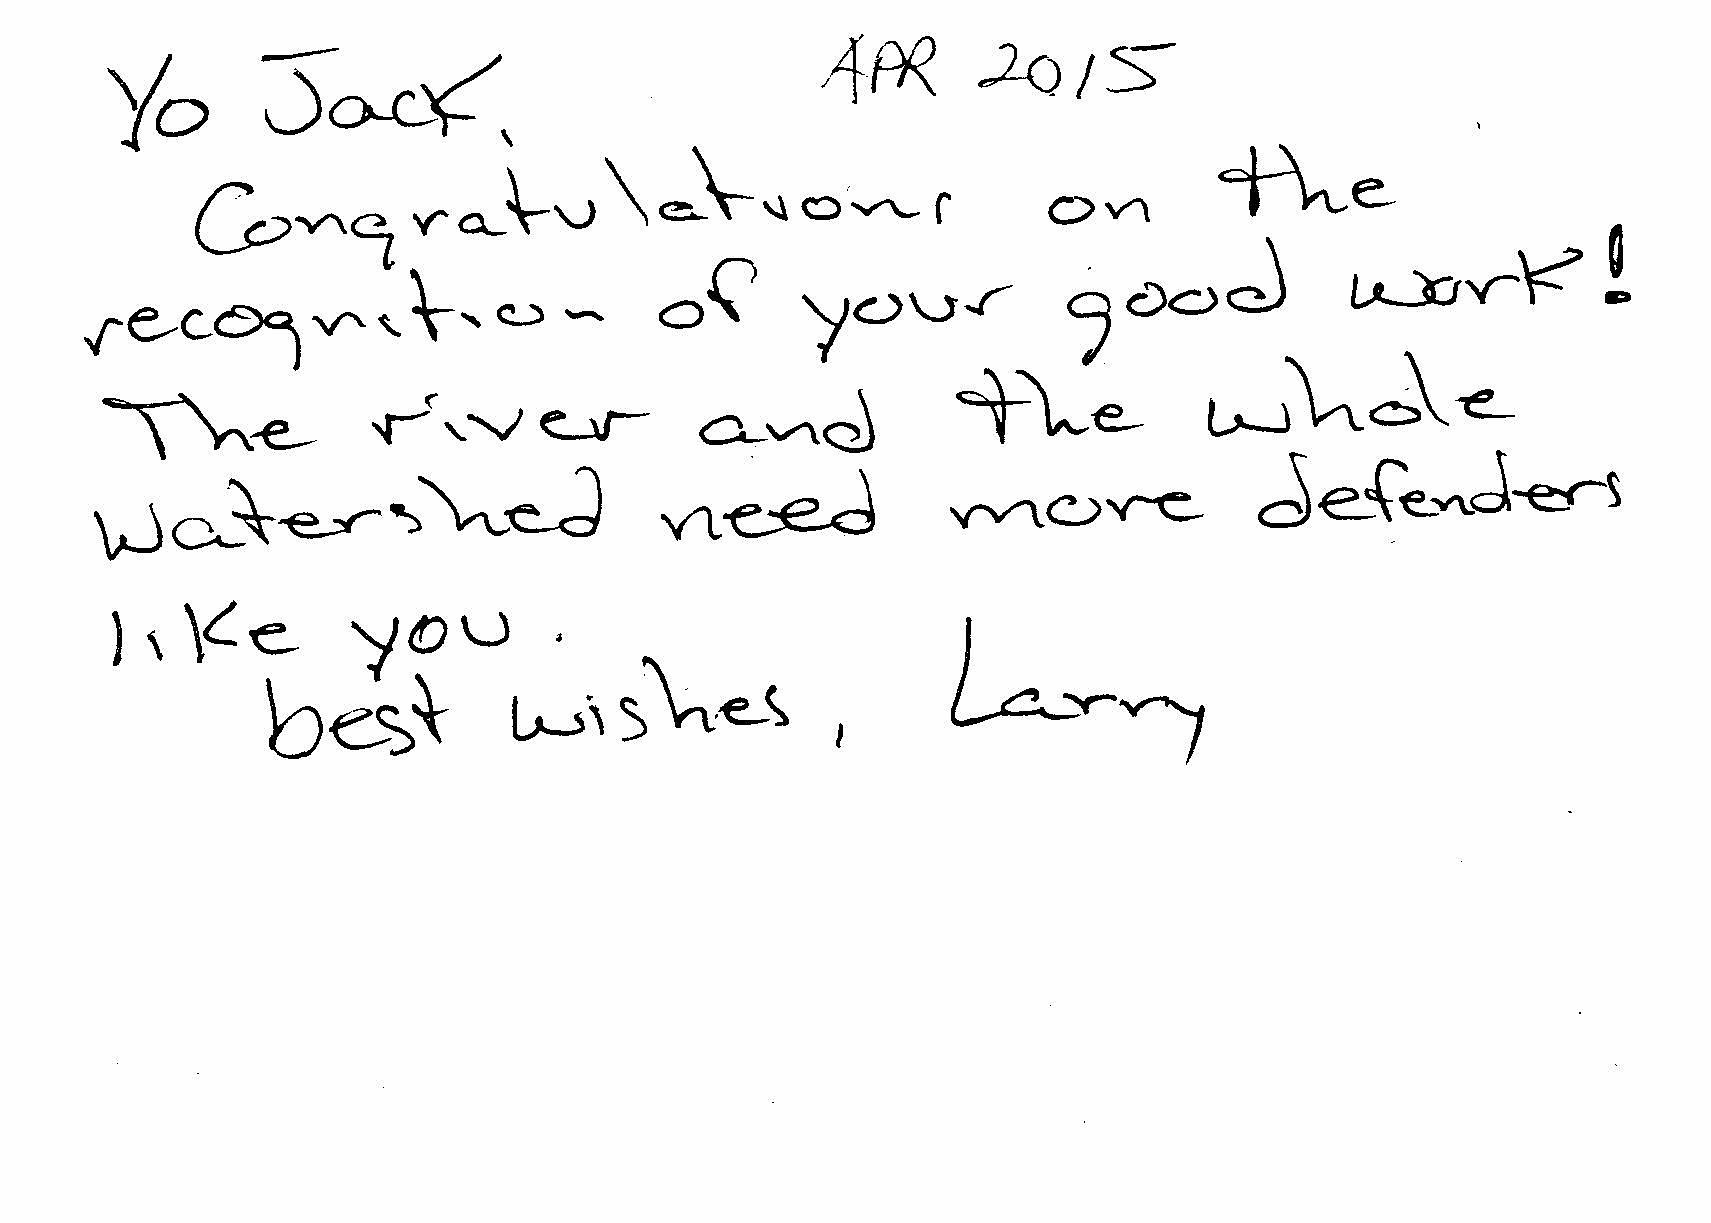 Yo Jack, APR 2015
Congratulations on the
recognition of your good work!
The river and the whole
watershed need more defenders
like you.
best wishes, Larry